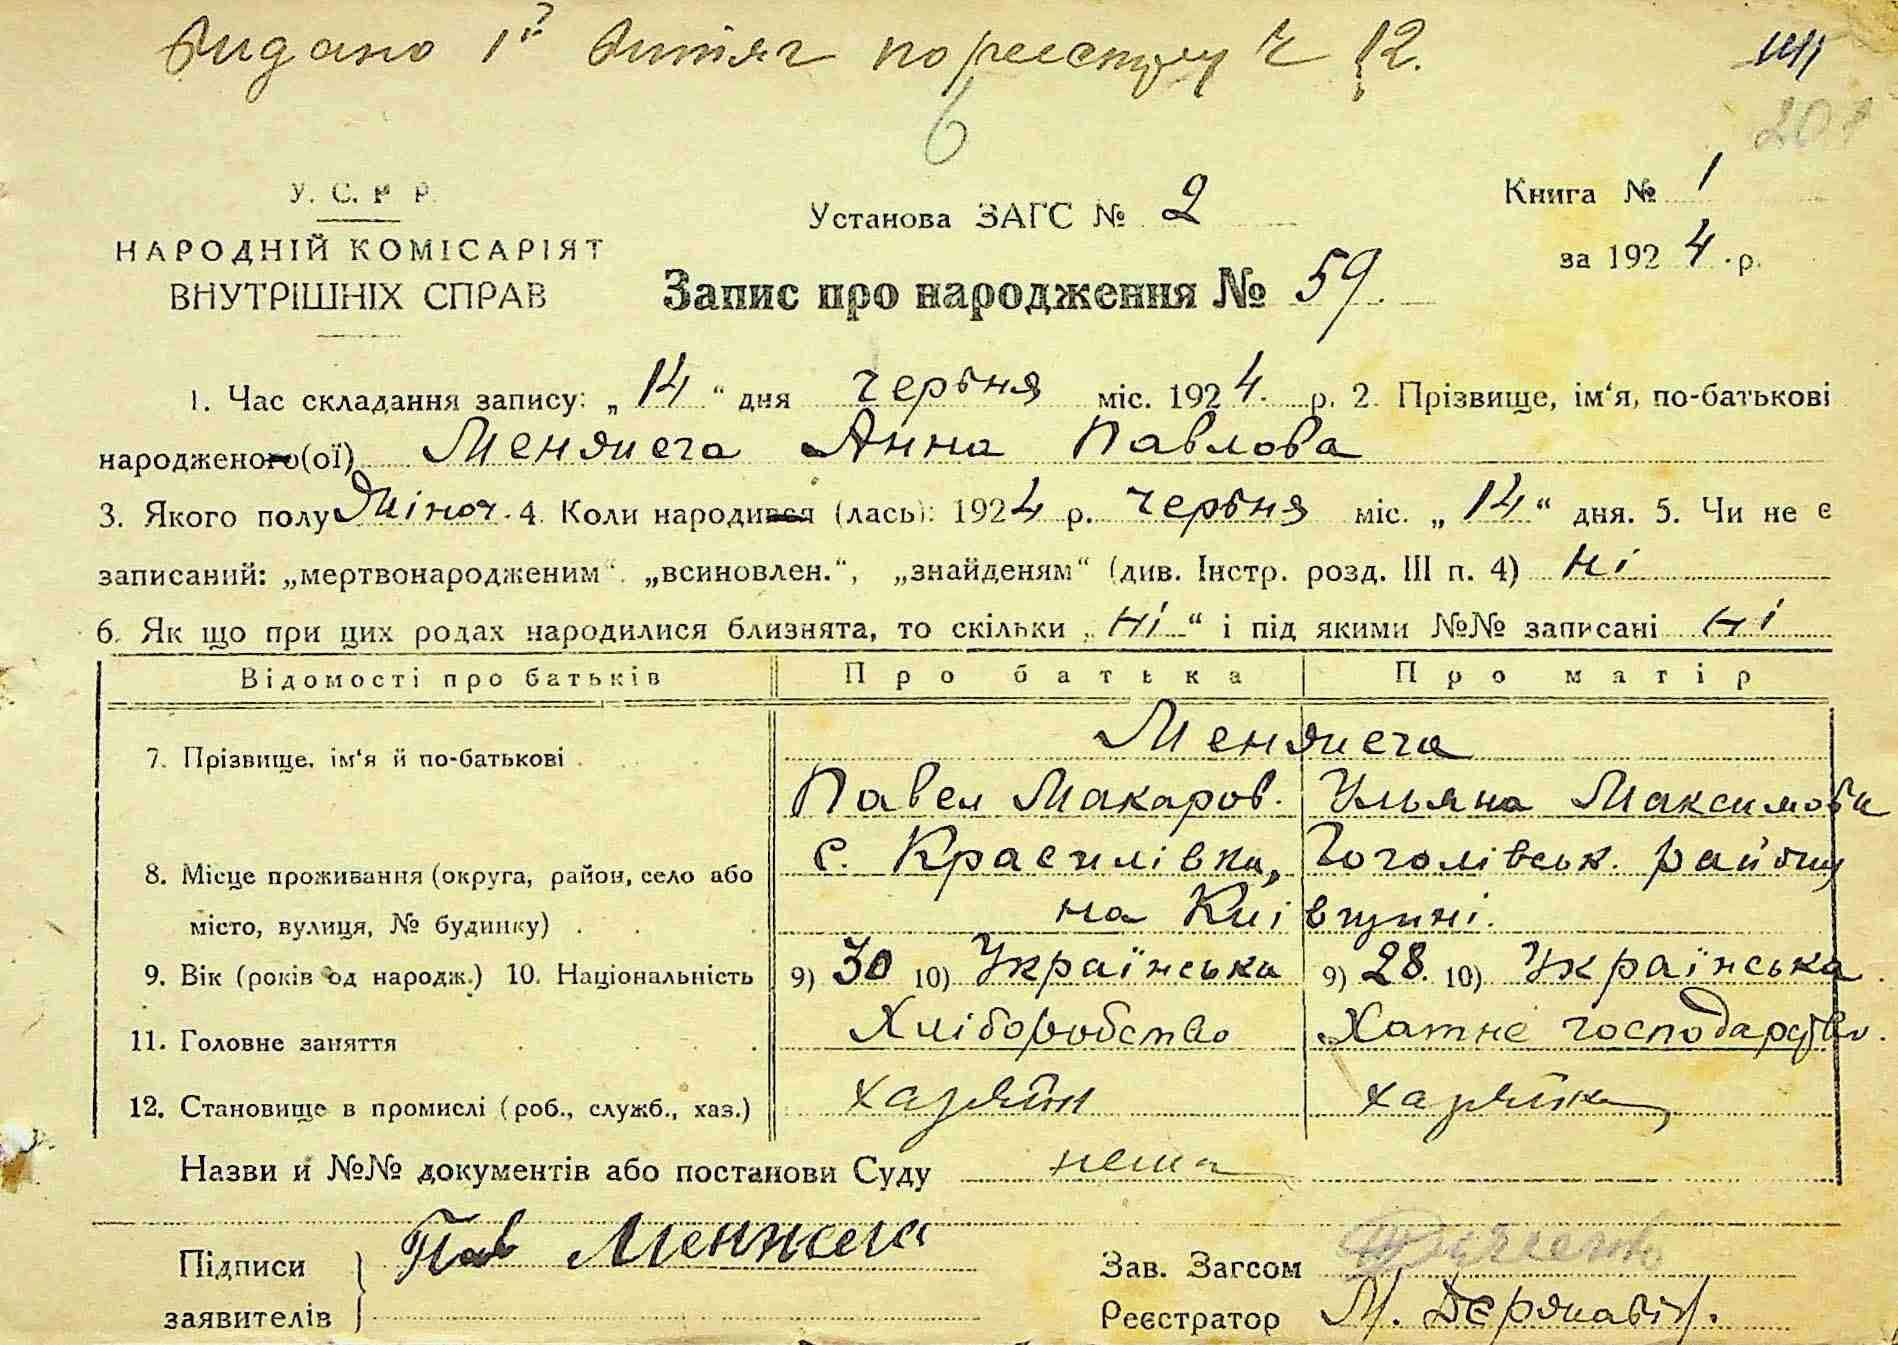 Видано 1й витяг по реєстру Ч 12.
6
201
У. С. Р. Р.
НАРОДНІЙ КОМІСАРІЯТ
ВНУТРІШНІХ СПРАВ
Установа ЗАГС № 2
Книга № 1
за 1924 р.
Запис про народження № 59.
1. Час складання запису: „14“ дня червня міс. 1924. р. 2. Прізвище, ім‘я, по-батькові
народженого(ої) Менжега Анна Павлова
3. Якого полу жіноч. 4. Коли народився (лась): 1924 р. червня міс. „14“ дня. 5. Чи не є
записаний: „мертвонародженим“, „всиновлен.“, „знайденям“ (див. Інстр. розд. III п. 4) ні
6. Як що при цих родах народилися близнята, то скільки „ні“ і під якими №№ записані ні
Відомості про батьків Про батька Про матір
7. Прізвище, ім‘я й по-батькові Менжега
Павел Макаров. Ульяна Максимови
8. Місце проживання (округа, район, село або с. Красилівка, Гоголівськ. району
місто, вулиця, № будинку) на Київщині.
9. Вік (років од народж.) 10. Національність 9) 30 10) Українська 9) 28. 10) Українська
11. Головне заняття Хліборобство Хатнє господарство.
12. Становище в промислі (роб., служб., хаз.) хазяїн хазяйка
Назви й №№ документів або постанови Суду нема
Підписи
заявителів
Пав Менжега
Зав. Загсом
Реєстратор М. Державін.